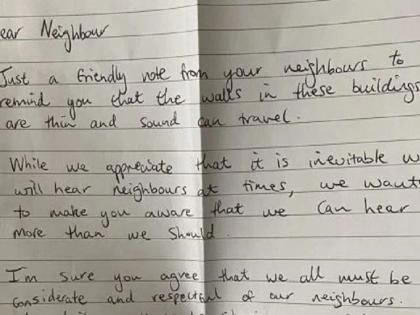 ear Neighbour
Just a friendly note from your neighbours to
remind you that the walls in these buildings
are thin and sound can travel.
While we appreciate that it is inevitable w
will hear neighbours at times, we want
to make you aware that we can hear
more than we should.
I'm sure you agree that we all must be
considerate and respectful of our neighbours.